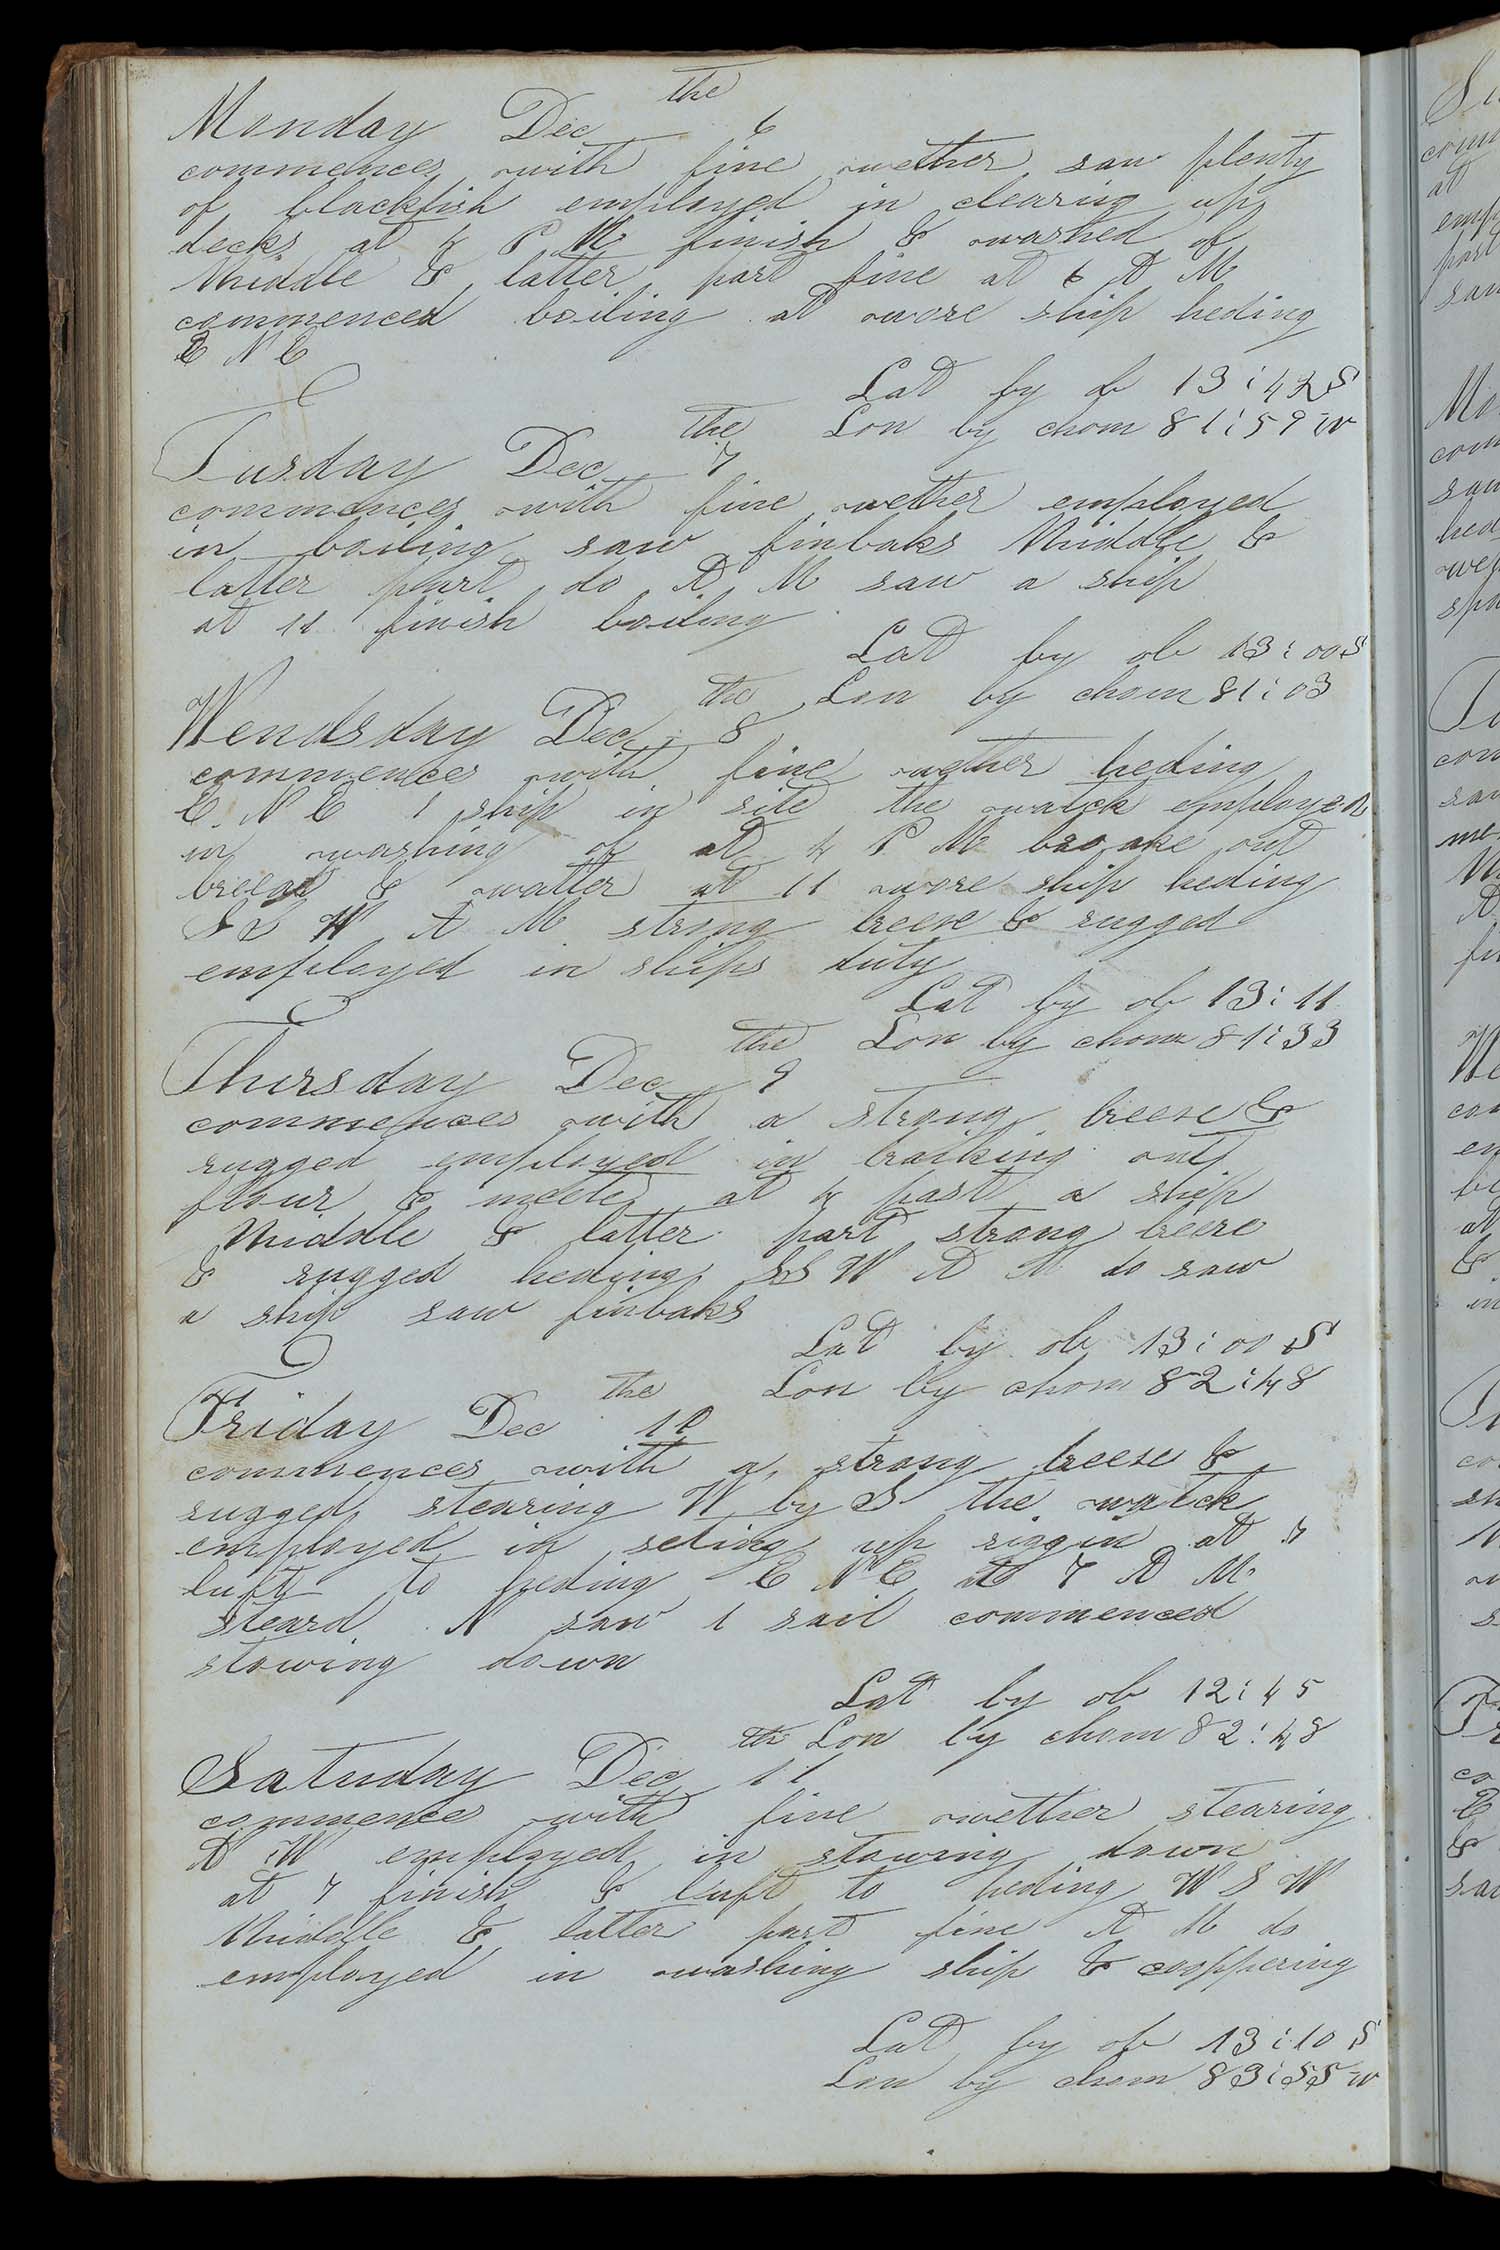 Monday Dec the 6
commences with fine wether saw plenty
of blackfish employed in clearing up
decks at 4 P M finish & washed of
Middle & latter part fine at 6 A M
commenced boiling at wore ship heding
E N E
Lat by ob 13:42 S
Lon by chom 81:59 w
Tusday Dec the 7
commences with fine wether employed
in boiling saw finbaks Middle &
latter part do A M saw a ship
at 11 finish boiling
Lat by ob 13:00 S
Lon by chom 81:03
Wendsday Dec the 8
commences with fine wether heding
E N E 1 ship in site the watck employed
in washing of at 4 P M broake out
bread & watter at 11 wore ship heding
S S W A M strong breese & rugged
employed in ships duty
Lat by ob 13:11
Lon by chom 81:33
Thursday Dec the 9
commences with a strong breese &
rugged employed in braiking out
flour & meete at 4 past a ship
Middle & latter part strong breese
& rugged heding SS W A M do saw
a ship saw finbaks
Lat by ob 13:00 S
Lon by chom 82:48
Friday Dec the 10
commences with a strong breese &
rugged stearing W by S the watck
employed in seting up riggin at 7
luft to heding E N E at 7 A M
steard N saw 1 sail commenced
stowing down
Lat by ob 12:45
Lon by chom 82:48
Satuday Dec th 11
commence with fine wether stearing
N W employed in stowing down
at 7 finish & luft to heding W S W
Middle & latter part fine A M do
employed in washing ship & coppering
Lat by ob 13:10 S
Lon by chom 83:55 w